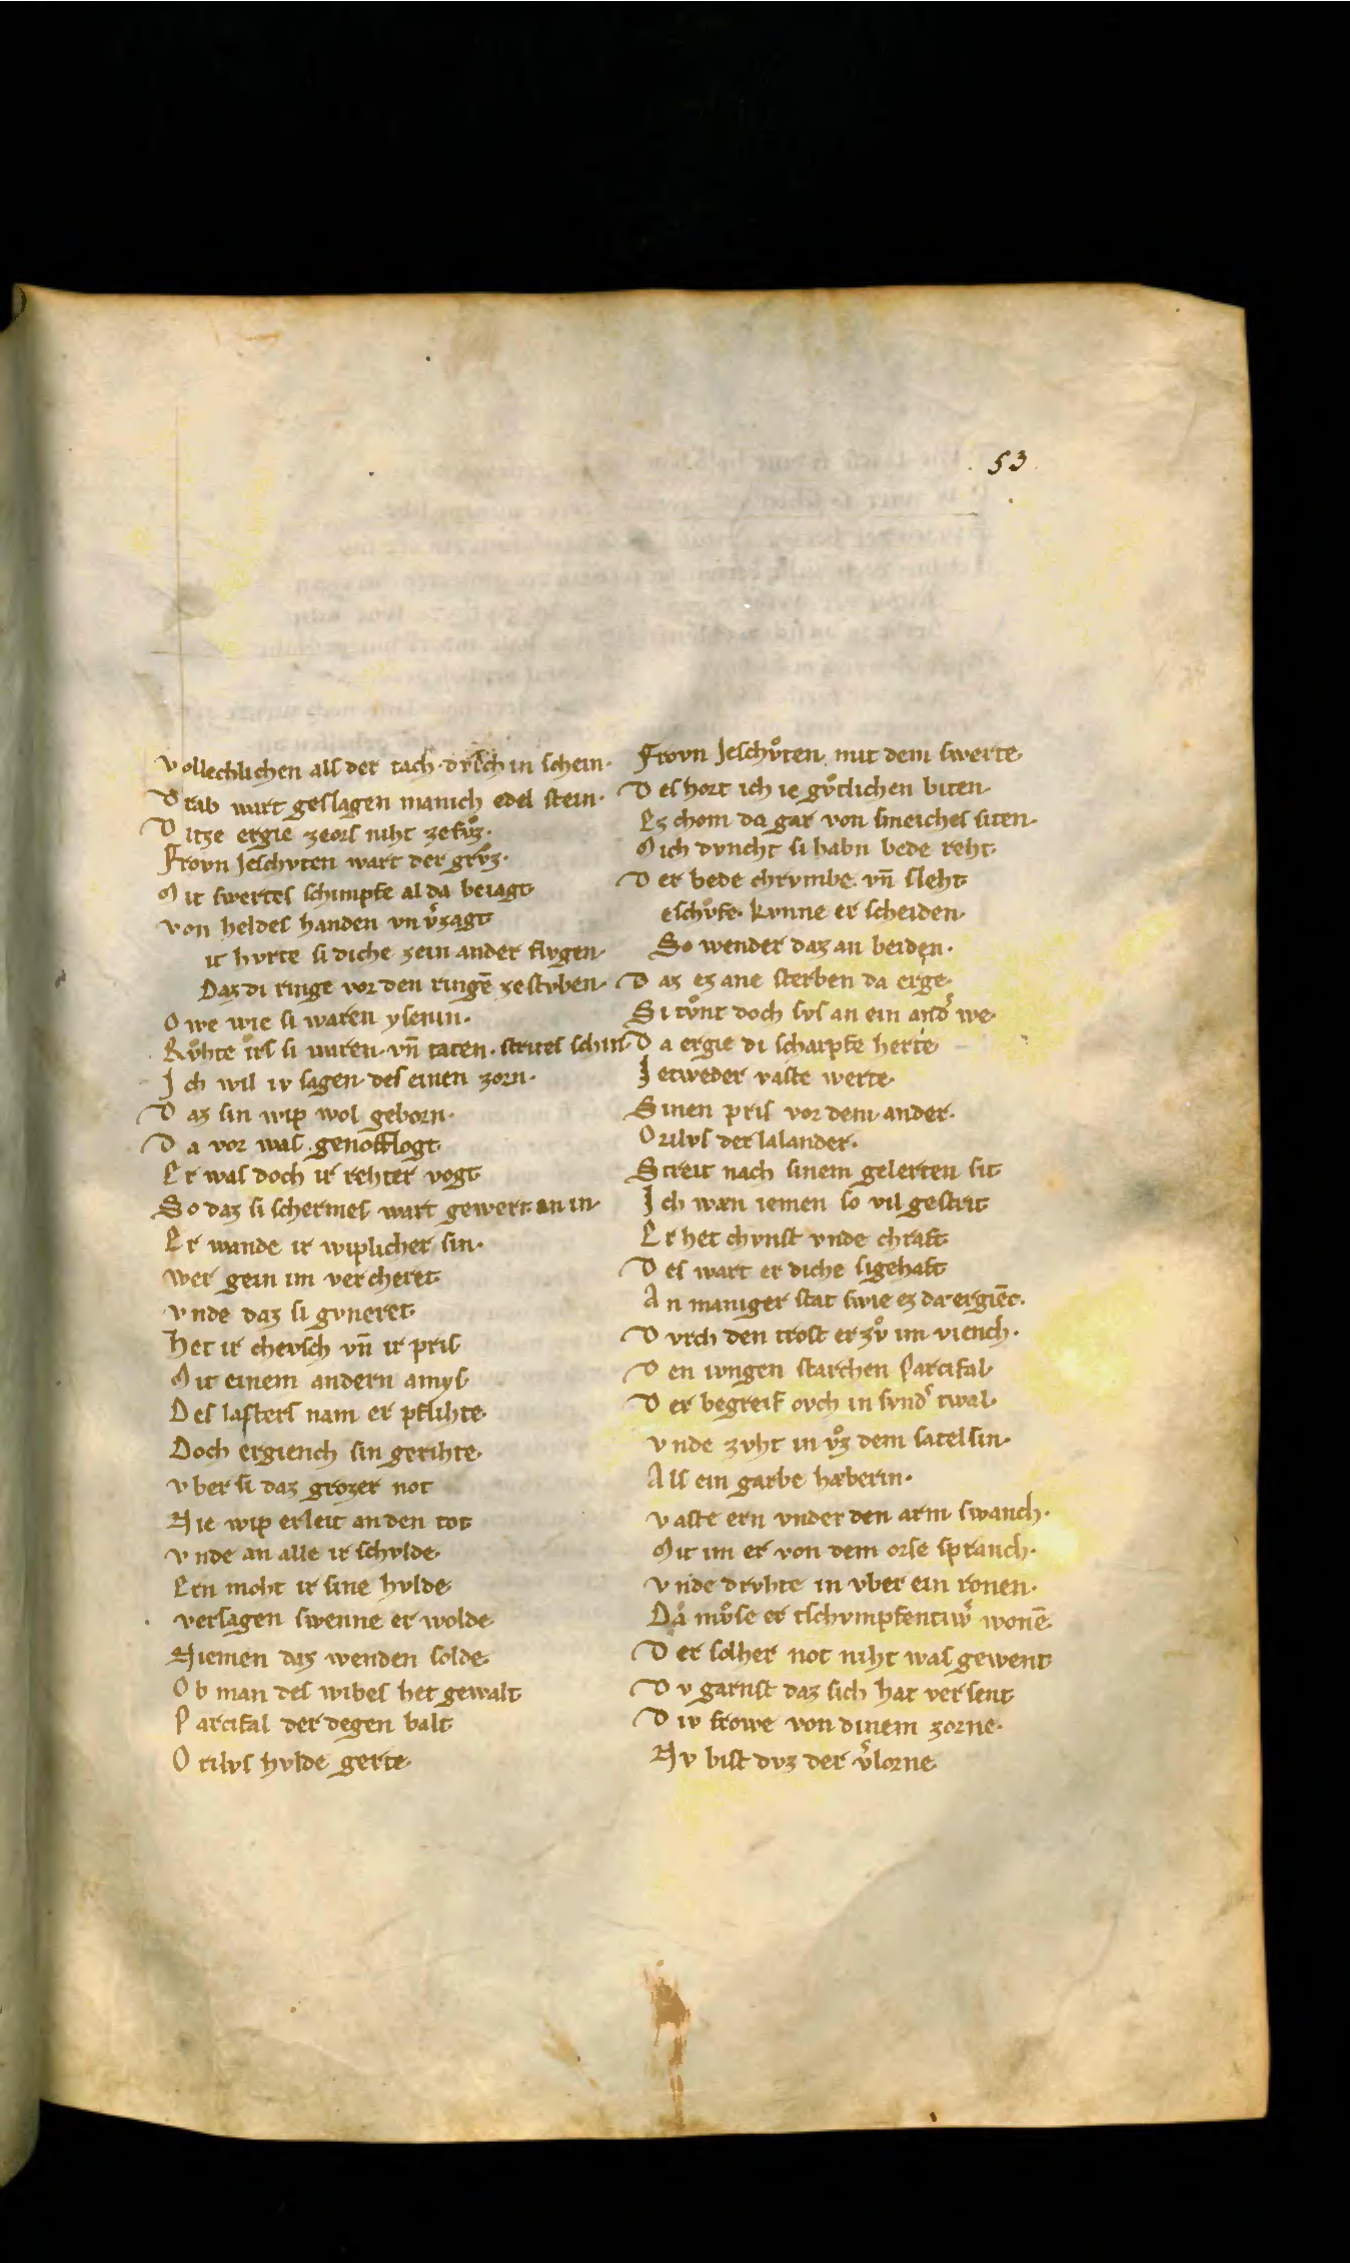 53
Vollechlichen als der tach dvrch in schein·
Drab wart geslagen manich edel stein·
Ditze ergie zeors niht zefvͦz·
Frovn Jeschvten wart der grvͦz·
Mit swertes schimpfe al da beiagt
Von heldes handen vn vͤzagt
it hvrte si diche zein ander flvgen·
Daz di ringe vor den ringē zestvben·
Owe wie si waren ysenin·
Rvͦhte irs si waren vn̄ taten· strites schin
Ich wil iv sagen des einen zorn·
Daz sin wip wol geborn·
Da vor was genotzogt
Er was doch ir rehter vogt
So daz si schermes wart gewert an in·
Er wande ir wiplicher sin·
Wer gein im vercheret
Vnde daz si gvneret
Het ir chevsch vn̄ ir pris
Mit einem andern amys
Des lasters nam er pflihte
Doch ergiench sin gerihte
Vber si daz grozer not
Nie wip erleit an den tot
Vnde an alle ir schvlde
Ern moht ir sine hvlde
versagen swenne er wolde
Niemen daz wenden solde
Ob man des wibes het gewalt
Parcifal der degen balt
Orilvs hvlde gerte
Frovn Jeschvͦten mit dem swerte
Des hort ich ie gvͦtlichen biten
Ez chom da gar von smeichel siten·
Mich dvncht si habn bede reht
Der bede chrvmbe vn̄ sleht
eschvͦfe· kvnne er scheiden·
So wender daz an beiden·
Daz ez ane sterben da erge
Si tvͦnt doch svs an ein andͤ we
Da ergie di scharpfe herte
Jetweder vaste werte
Sinen pris vor dem ander·
Orilvs der lalander·
Streit nach sinem gelerten sit
Ich wæn iemen so vil gestrit
Er het chvnst vnde chraft
Des wart er diche sigehaft
An maniger stat swie ez da ergiēc·
Dvrch den trost er zvͦ im viench·
Den ivngen starchen Parcifal
Der begreif ovch in svndͤ twal·
Vnde zvht in vͦz dem satel sin·
Als ein garbe hæberin·
Vaste ern vnder den arm swanch·
Mit im er von dem orse spranch·
Vnde drvhte in vber ein ronen·
Da mvͦse er tschvmpfentivͤ wonē
Der solher not niht was gewent
Dv garnst daz sich hat versent
Div frowe von dinem zorne·
Nv bist dvz der vͤlorne